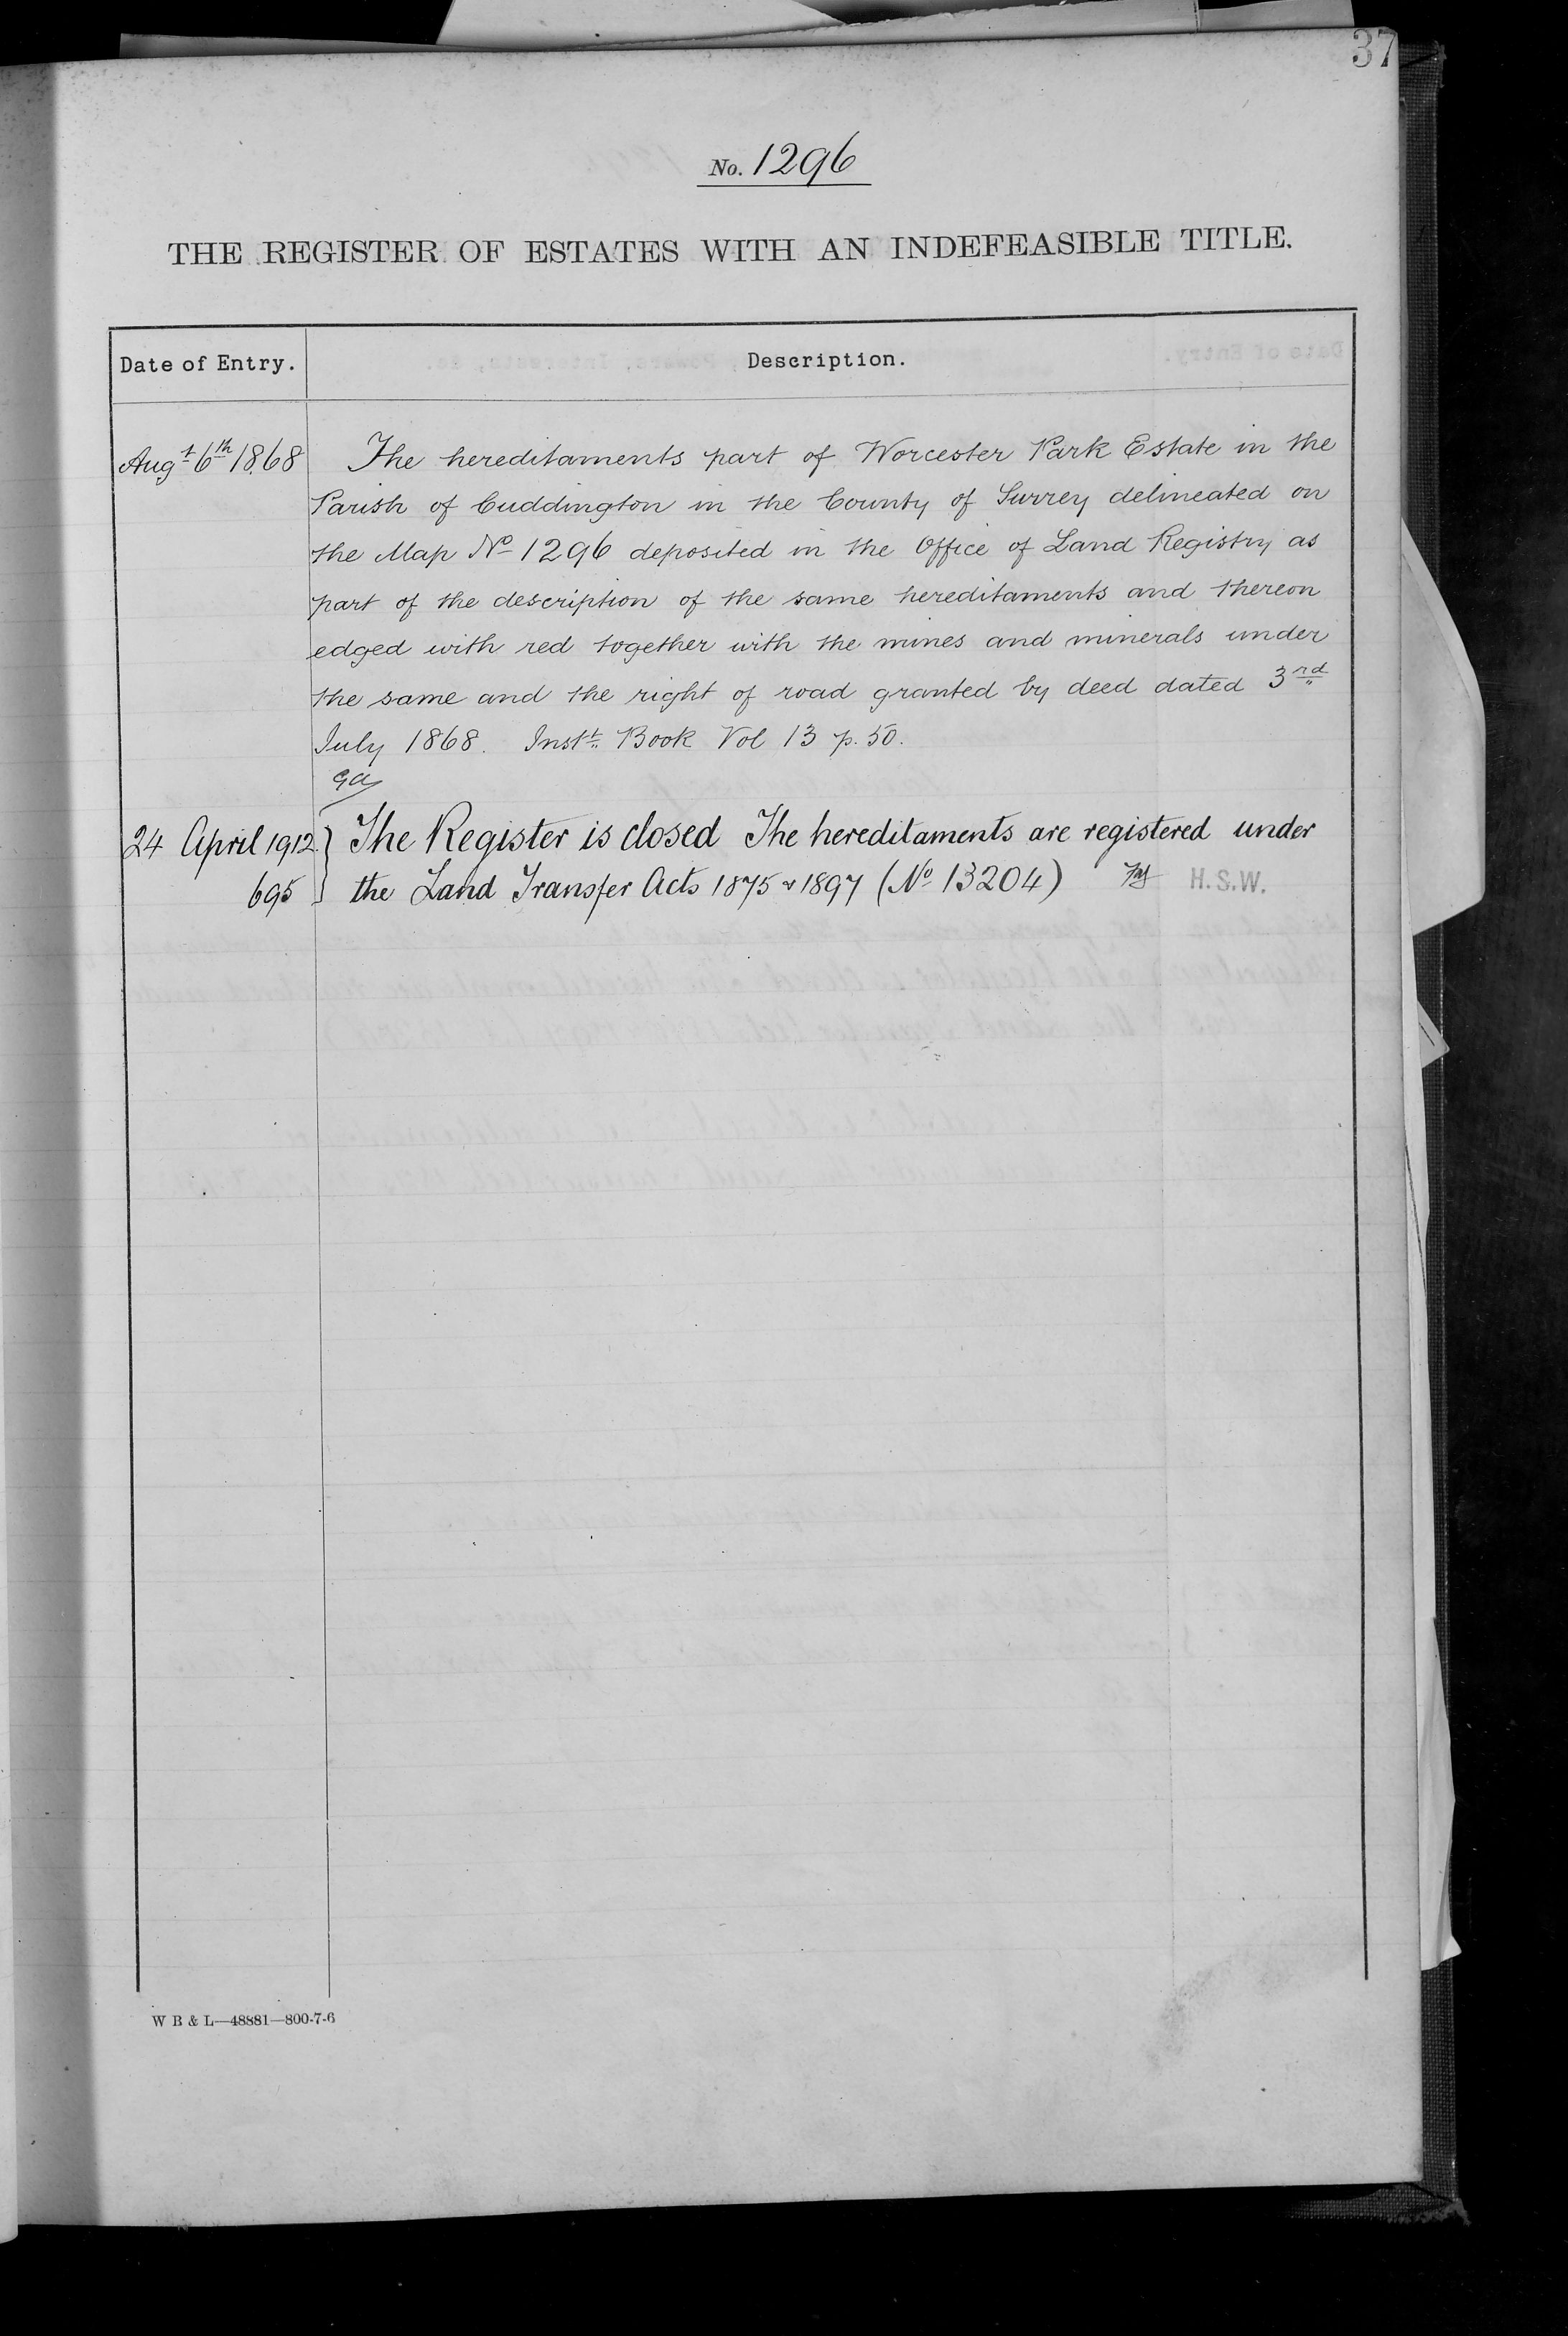 37
No. 1296
THE REGISTER OF ESTATES WITH AN INDEFEASIBLE TITLE.
Date of Entry. Description.
Augt 6th 1868 The hereditaments part of Worcester Park Estate in the
Parish of Cuddington in the County of Surrey delineated on
the Map No 1296 deposited in the Office of Land Registry as
part of the description of the same hereditaments and thereon
edged with red together with the mines and minerals under
the same and the right of road granted by deed dated 3rd
July 1868. Instt. Book Vol 13 p. 50.
24 April 1912 } The Register is closed The hereditaments are registered under
695 the Land Transfer Acts 1875 & 1897 (No 13204) H.S.W.
W B & L—48881—800-7-6